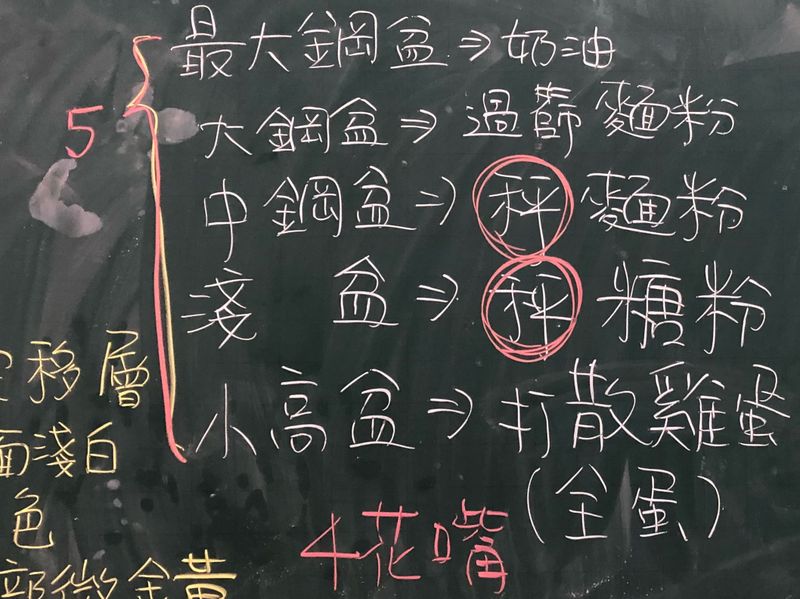 最大鋼盆⇒奶油
5
大鋼盆⇒過篩麵粉
中鋼盆⇒秤麵粉
淺 盆⇒秤糖粉
小高盆⇒打散雞蛋
(全蛋)
4花嘴
移層
面淺白
色
部微金黃